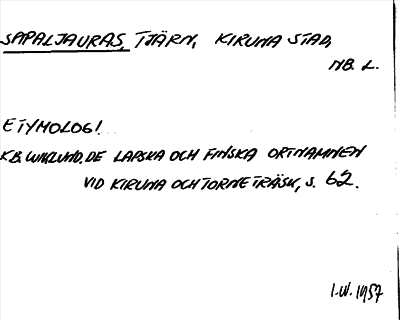 SAPALJAURAS, TJÄRN, KIRUNA STAD,
NB. L.
ETYMOLOGI
K.B. WIKLUND, DE LAPSKA OCH FINSKA ORTNAMNEN
VID KIRUNA OCH TORNETRÄSK, S. 62.
I.W. 1957